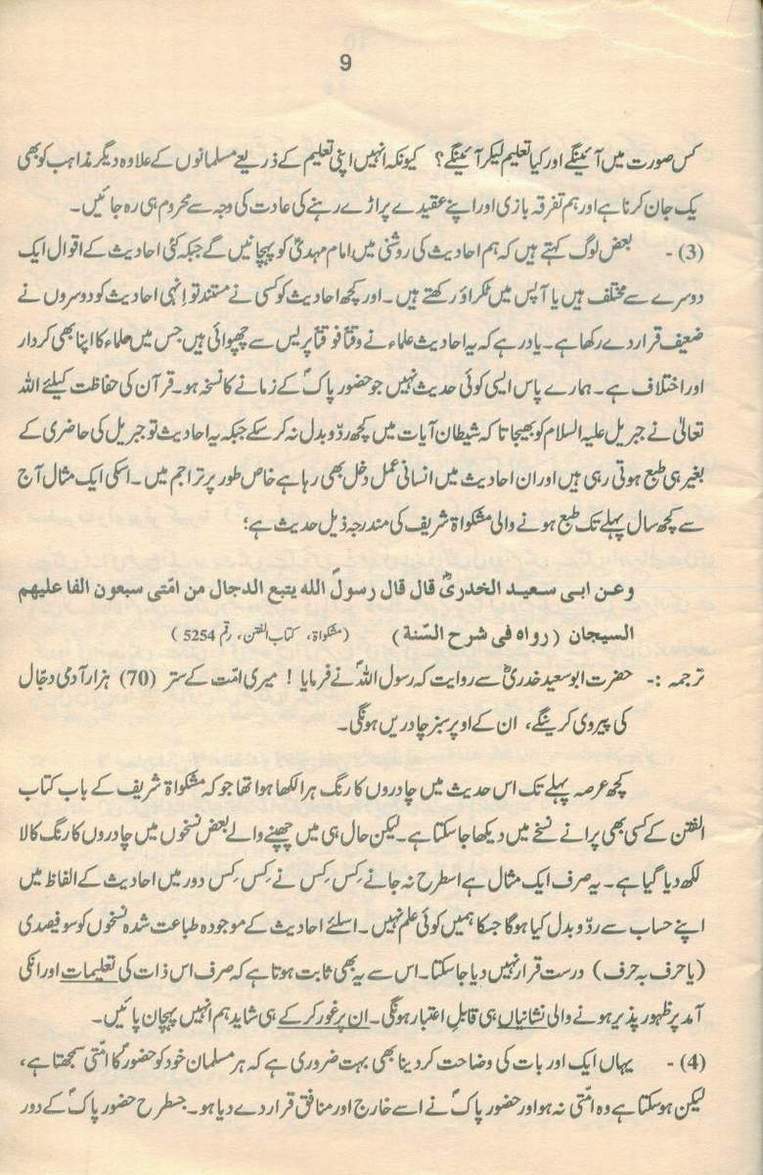 9
کس صورت میں آئینگے اور کیا تعلیم لیکر آئینگے؟ کیونکہ انہیں اپنی تعلیم کے ذریعے مسلمانوں کے علاوہ دیگر مذاہب کو بھی
یک جان کرنا ہے اور ہم تفرقہ بازی اور اپنے عقیدے پر اڑے رہنے کی عادت کی وجہ سے محروم ہی رہ جائیں۔
(3)- بعض لوگ کہتے ہیں کہ ہم احادیث کی روشنی میں امام مہدیؑ کو پہچانیں گے جبکہ کئی احادیث کے اقوال ایک
دوسرے سے مختلف ہیں یا آپس میں ٹکراؤ رکھتے ہیں۔ اور کچھ احادیث کو کسی نے مستند تو انہی احادیث کو دوسروں نے
ضعیف قرار دے رکھا ہے۔ یاد رہے کہ یہ احادیث علماء نے وقتاً فوقتاً پریس سے چھپوائی ہیں جس میں علماء کا اپنا بھی کردار
اور اختلاف ہے۔ ہمارے پاس ایسی کوئی حدیث نہیں جو حضور پاکؐ کے زمانے کا نسخہ ہو۔ قرآن کی حفاظت کیلئے اللہ
تعالیٰ نے جبریل علیہ السلام کو بھیجا تاکہ شیطان آیات میں کچھ ردّ و بدل نہ کر سکے جبکہ یہ احادیث تو جبریل کی حاضری کے
بغیر ہی طبع ہوتی رہی ہیں اور ان احادیث میں انسانی عمل دخل بھی رہا ہے خاص طور پر تراجم میں۔ اسکی ایک مثال آج
سے کچھ سال پہلے تک طبع ہونے والی مشکواۃ شریف کی مندرجہ ذیل حدیث ہے؛
وعن ابی سعید الخدریؓ قال قال رسولؐ الله یتبع الدجال من امّتی سبعون الفا علیهم
السیجان (رواه فی شرح السّنة) (مشکواۃ، کتاب الفتن، رقم 5254)
ترجمہ :- حضرت ابو سعید خدریؓ سے روایت کہ رسول اللہؐ نے فرمایا! میری امّت کے ستر (70) ہزار آدمی دجّال
کی پیروی کرینگے، ان کے اوپر سبز چادریں ہونگی۔
کچھ عرصہ پہلے تک اس حدیث میں چادروں کا رنگ ہرا لکھا ہوا تھا جو کہ مشکواۃ شریف کے باب کتاب
الفتن کے کسی بھی پرانے نسخے میں دیکھا جا سکتا ہے۔ لیکن حال ہی میں چھپنے والے بعض نسخوں میں چادروں کا رنگ کالا
لکھ دیا گیا ہے۔ یہ صرف ایک مثال ہے اسطرح نہ جانے کِس کِس نے کِس کِس دور میں احادیث کے الفاظ میں
اپنے حساب سے ردّ و بدل کیا ہوگا جسکا ہمیں کوئی علم نہیں۔ اسلئے احادیث کے موجودہ طباعت شدہ نسخوں کو سو فیصدی
(یا حرف بہ حرف) درست قرار نہیں دیا جا سکتا۔ اس سے یہ بھی ثابت ہوتا ہے کہ صرف اس ذات کی تعلیمات اور انکی
آمد پر ظہور پذیر ہونے والی نشانیاں ہی قابلِ اعتبار ہونگی۔ ان پر غور کر کے ہی شاید ہم انہیں پہچان پائیں۔
(4)- یہاں ایک اور بات کی وضاحت کر دینا بھی بہت ضروری ہے کہ ہر مسلمان خود کو حضورؐ کا امّتی سمجھتا ہے،
لیکن ہو سکتا ہے وہ امّتی نہ ہو اور حضور پاکؐ نے اسے خارج اور منافق قرار دے دیا ہو۔ جسطرح حضور پاکؐ کے دور